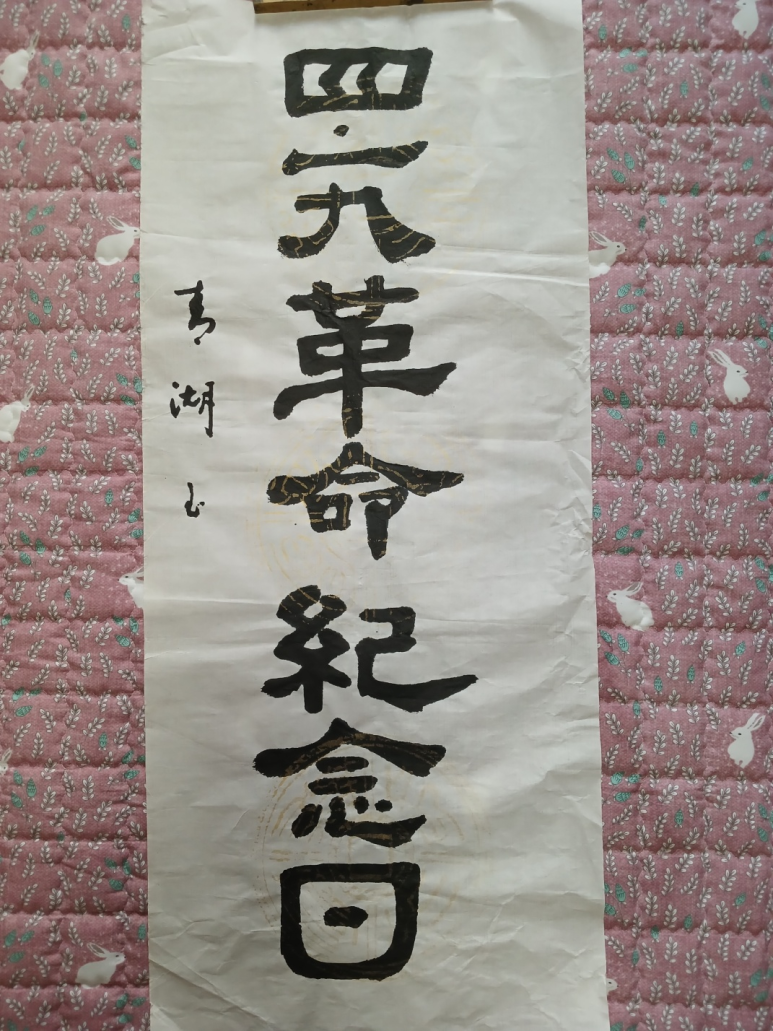 四·一九革命紀念日
青湖书